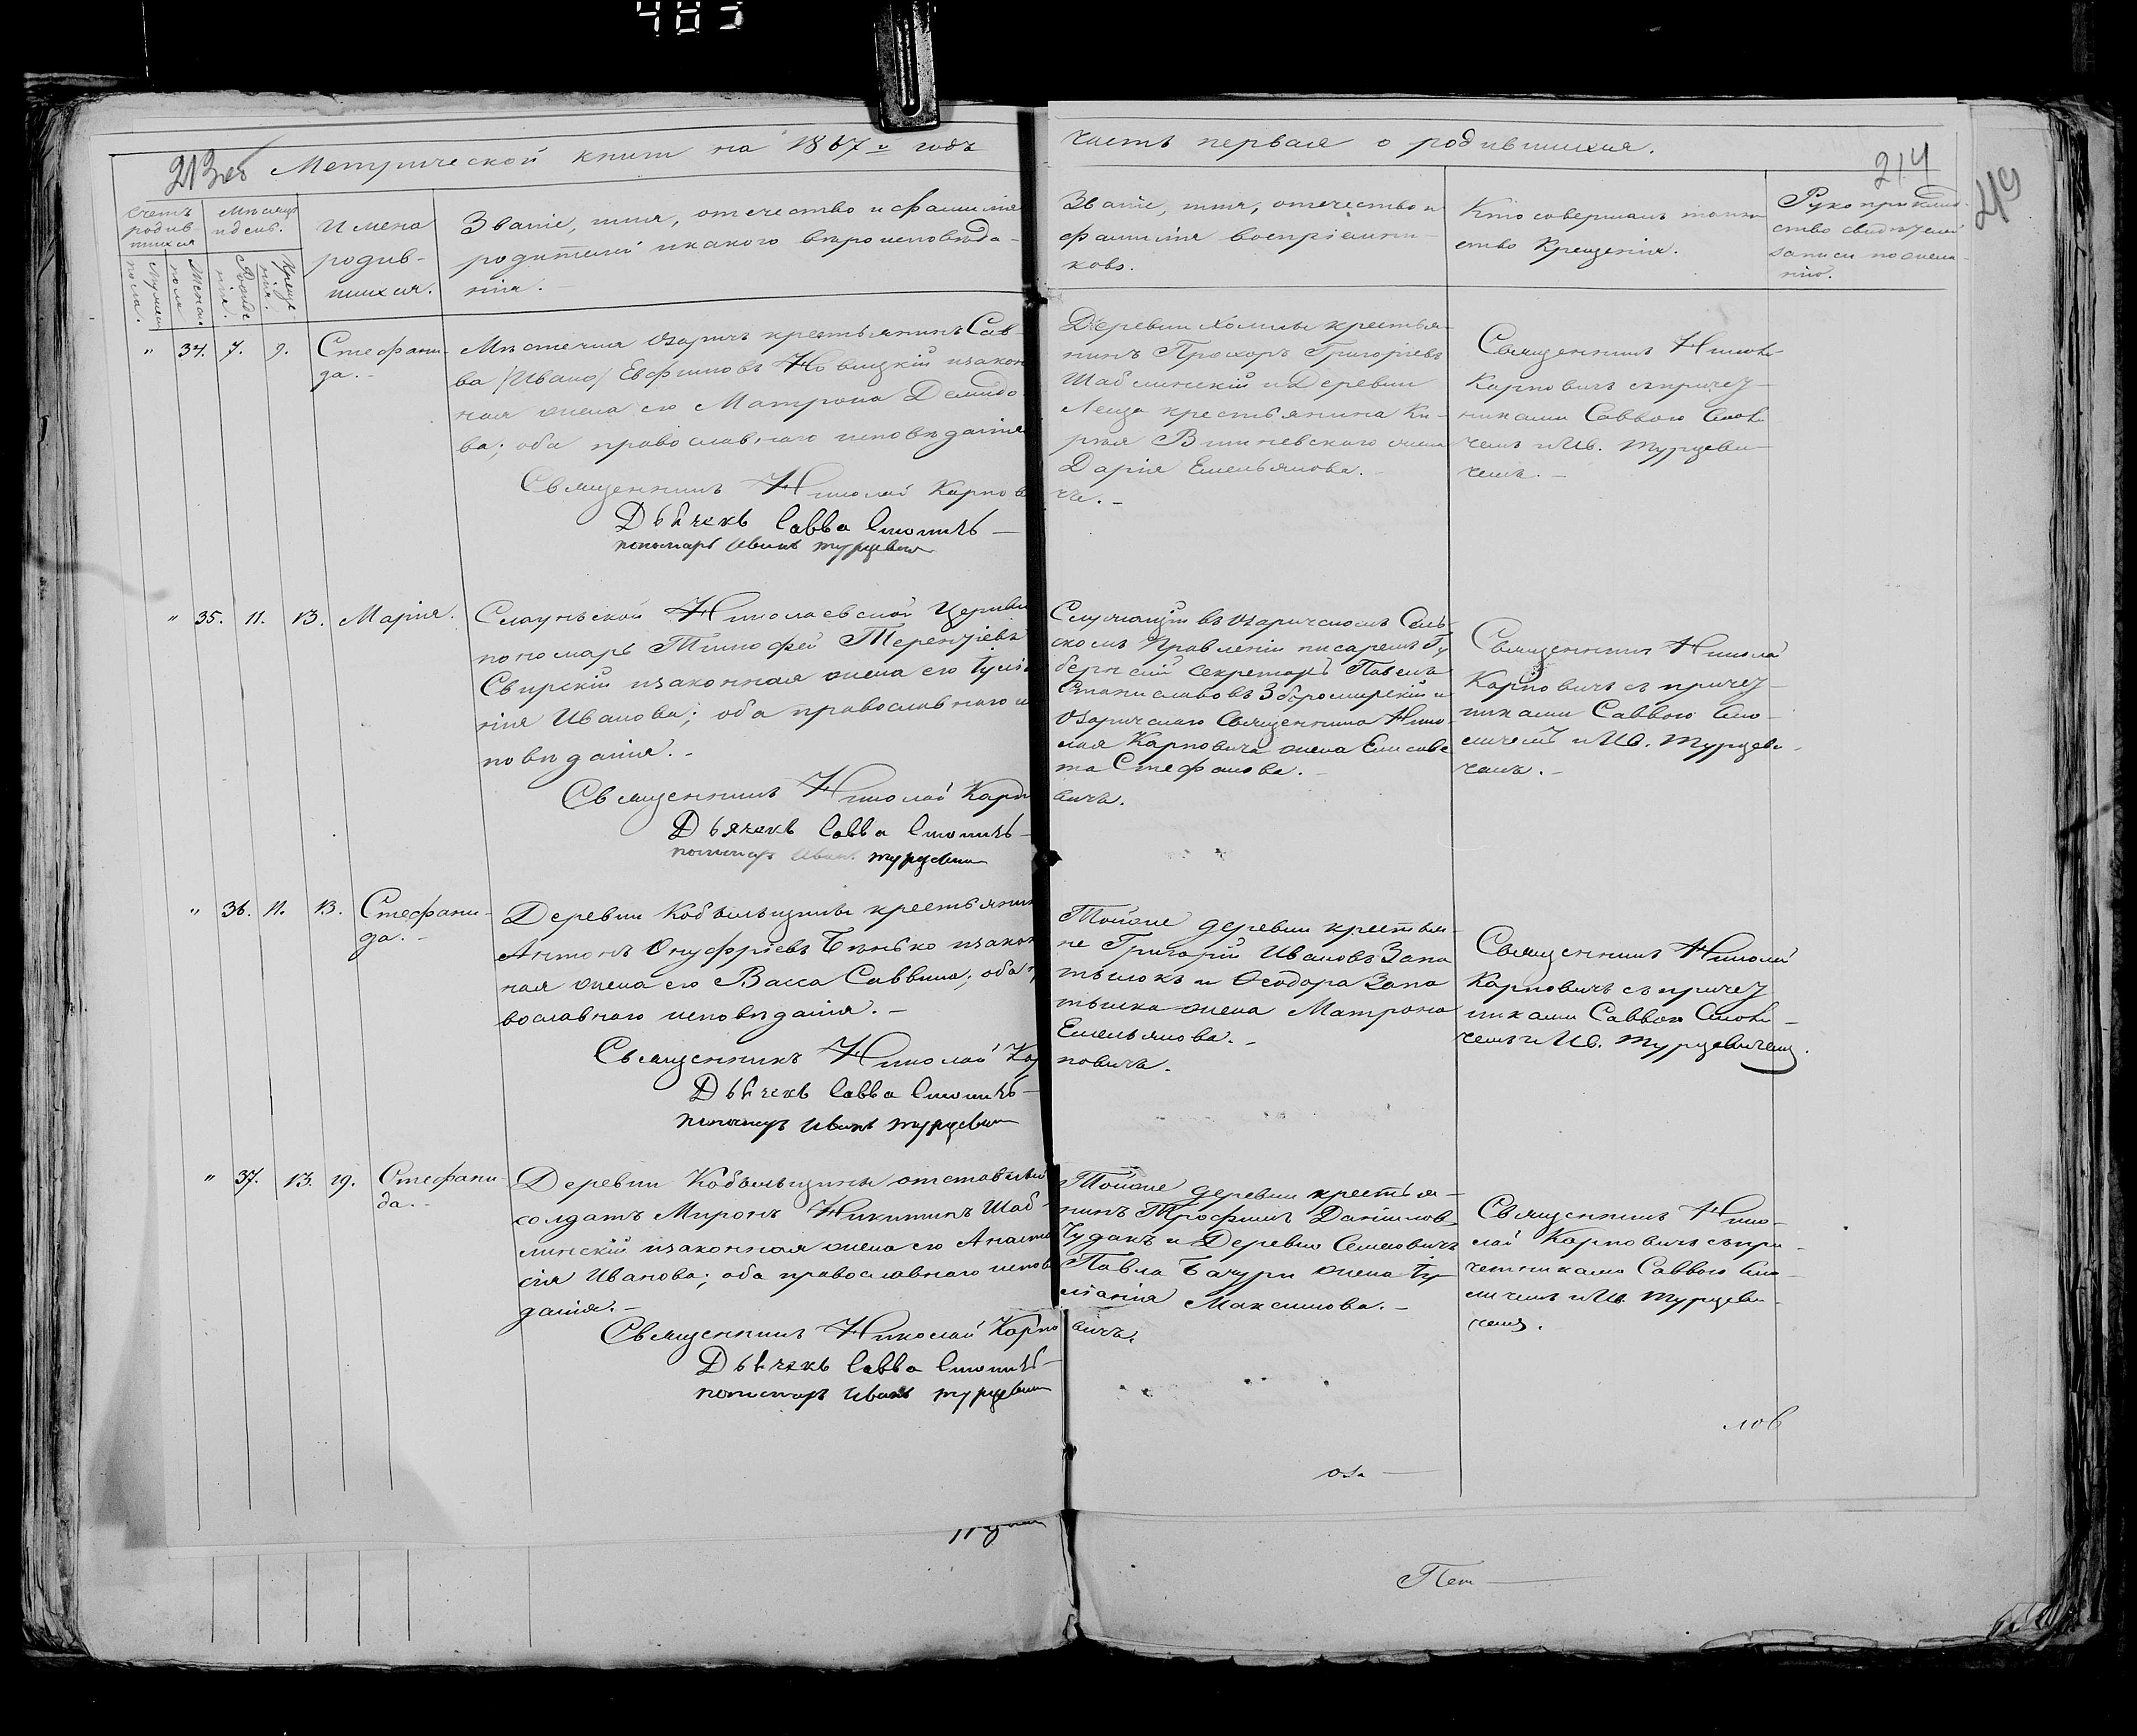 483
Метрической книги на 1867й годъ
часть первая о родившихся.
213
214
Счетъ родив-
шихся
Мужеска
пола.
Женска
пола
Мѣсяцъ
и день.
Рожде
нія.
Креще-
нія.
Имена
родив-
шихся.
Званіе, имя, отечество и фамилія
родителей и какого вѣроисповѣда-
нія.
Званіе, имя, отечество и
фамилія воспріемни-
ковъ.
Кто совершалъ таин-
ство Крещенія.
Рукоприклад-
ство свидѣтелей
записи по жела-
нію.
" 34. 7. 9. Стефани-
да.-
Мѣстечка Озаричъ крестьянинъ Сав
ва /Ивано/ Евфимовъ Новицкій и закон
ная жена его Матрона Демидо
ва; оба православнаго исповѣданія
Священникъ Николай Карпов
Дьячекъ Савва Смоличъ
пономарь Иванъ Турцевич
Деревни Холмы крестья-
нинъ Прохоръ Григоріевъ
Шаблинскій и Деревни
крестьянина Ки-
рила Вишневскаго жена
Дарія Емельянова.
чъ.-
Священникъ Николай
Карповичъ съ причет-
никами Саввою Смоли
чемъ и Ив. Турцеви
чемъ.-
" 35. 11. 13. Марія.
Николаевской Церкви
пономарь Тимофей Терентіевъ
Свирскій и законная жена его Іулiа
нія Иванова; оба православнаго ис
повѣданія.-
Священникъ Николай Карпо
Дьячекъ Савва Смоличъ-
пономарь Иванъ Турцевич
Служащій въ Озаричскомъ Сель-
скомъ Правленіи писаремъ Гу
бернскій Секретарь Павелъ
Станиславовъ Збромирскій и
Озаричскаго Священника Нико-
лая Карповича жена Елисаве
та Стефанова.-
вичъ.
Священникъ Николай
Карповичъ съ причет-
никами Саввою Смо-
личемъ и Ив. Турцеви-
чемъ.-
" 36. 11. 13. Стефани-
да.-
Деревни Кобыльщины крестьянин
Антонъ Онуфріевъ Бѣнько и закон
ная жена его Васса Саввина; оба пра
вославнаго исповѣданія.-
Священникъ Николай Кар
Дьячекъ Савва Смоличъ-
пономарь Иванъ Турцевич
Тойже деревни крестья-
не Григорій Ивановъ Запа
тылокъ и Ѳеодора Запа
тылка жена Матрона
Емельянова.-
повичъ.
Священникъ Николай
Карповичъ съ причет
никами Саввою Смоли-
чемъ и Ив. Турцевичемъ.
" 37. 13. 19. Стефани-
да.-
Деревни Кобыльщины отставной
солдатъ Миронъ Никитинъ Шаб-
линскій и законная жена его Анаста
сія Иванова; оба православнаго исповѣ
данія.-
Священникъ Николай Карпо
Дьячекъ Савва Смоличъ-
пономарь Иванъ Турцевич
Тойже деревни крестья-
нинъ Трофимъ Даниловъ
Чудакъ и Деревни Семеновичъ
Павла Бачури жена Іу-
ліанія Максимова.-
вичъ.
Священникъ Нико-
лай Карповичъ съ при-
четниками Саввою Смо-
личемъ и Ив. Турцеви-
чемъ.
лов